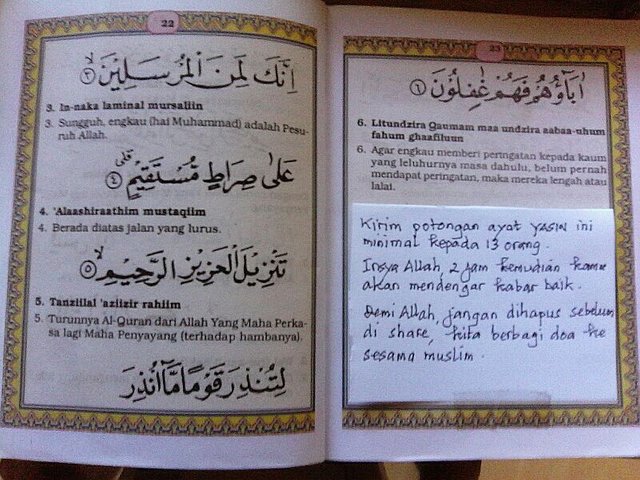 22
اِنَّكَ لَمِنَ الْمُرْسَلِيْنَۙ ﴿٣﴾
3. In-naka laminal mursaliin
3. Sungguh, engkau (hai Muhammad) adalah Pesu-
ruh Allah.
عَلٰى صِرَاطٍ مُّسْتَقِيْمٍۗ ﴿٤﴾
4. 'Alaashiraathim mustaqiim
4. Berada diatas jalan yang lurus.
تَنْزِيْلَ الْعَزِيْزِ الرَّحِيْمِۙ ﴿٥﴾
5. Tanziilal 'aziizir rahiim
5. Turunnya Al-Quran dari Allah Yang Maha Perka-
sa lagi Maha Penyayang (terhadap hambanya).
لِتُنْذِرَ قَوْمًا مَّآ اُنْذِرَ
23
اٰبَاۤؤُهُمْ فَهُمْ غٰفِلُوْنَ ﴿٦﴾
6. Litundzira Qaumam maa undzira aabaa-uhum
fahum ghaafiluun
6. Agar engkau memberi peringatan kepada kaum
yang leluhurnya masa dahulu, belum pernah
mendapat peringatan, maka mereka lengah atau
lalai.
Kirim potongan ayat YASIN ini
minimal kepada 13 orang.
Insya Allah, 2 jam kemudian kamu
akan mendengar kabar baik.
Demi Allah, jangan dihapus sebelum
di share, kita berbagi doa ke
sesama muslim.